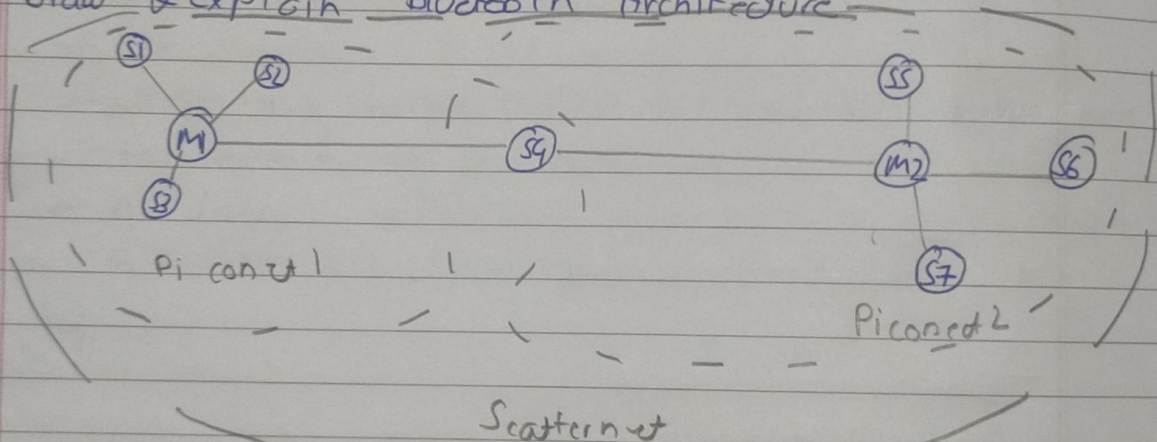 Draw & explain Bluetooth Architecture
S1
S2
S5
M1
S4
M2
S6
S3
Pi conet 1
S7
Piconet 2
Scatternet